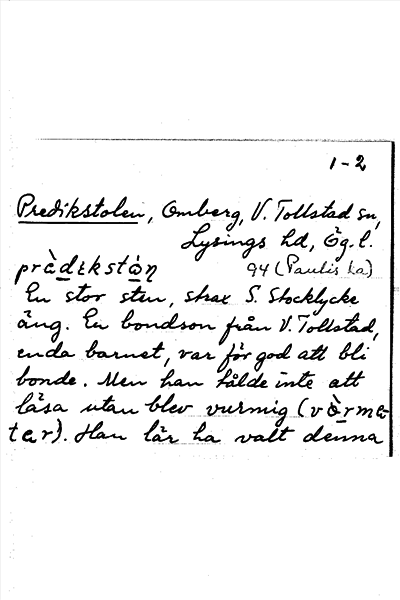 1-2
Predikstolen, Omberg, V. Tollstad sn,
Lysings hd, Ög.l.
prὰdɩkstòn 94 (Paulis ka)
En stor sten, strax S. Stocklycke
äng. En bondson från V. Tollstad,
enda barnet, var för god att bli
bonde. Men han tålde inte att
läsa utan blev vurmig (vòrmɐ-
tɐr). Han lär ha valt denna